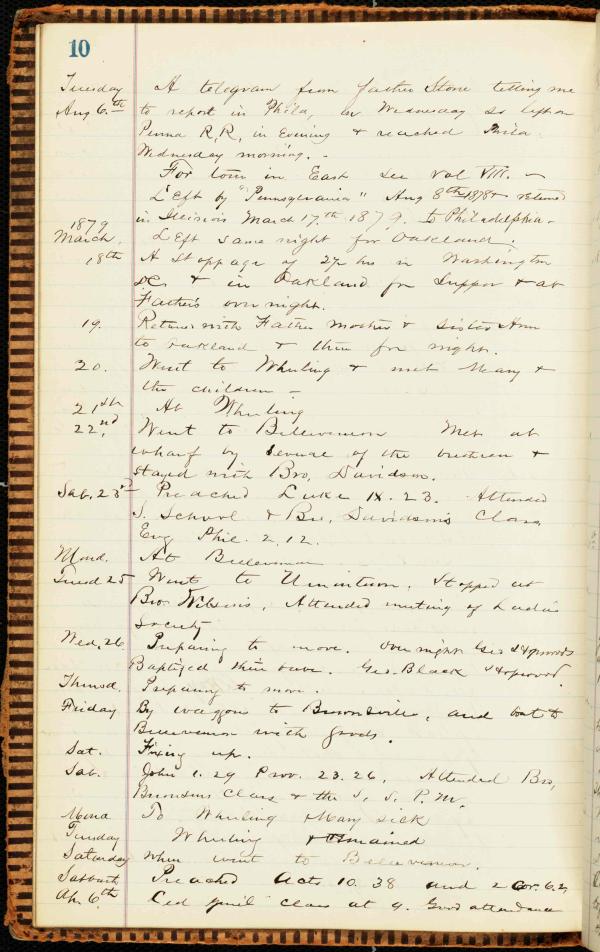 10
Tuesday A telegram from father Stone telling me
Aug 6.th to report in Phila, on Wednesday so left on
Penna R.R. in Evening & reached Phila.
Wednesday morning. -
For tour in East see Vol VIII. -
Left by "Pennsylvania" Aug 8th 1878 & returned
in March 17.th 1879. to Philadelphia -
1879
March. Left same night for Oakland.
18th A stoppage of hrs in Washington
& in Oakland for Supper & at
Father's over night.
19. Return with Father Mother & Sister Ann
to Oakland & there for night.
20. Went to Wheeling & met Mary &
the children -
21st At Wheeling
22nd, Went to Bellevernon Met at
wharf by several of the brethren &
stayed with Bro, Davidson.
Sab. 23d Preached Luke IX. 23. Attended
S. School & Bro, Davidson's Class,
Evg Phil. 2. 12.
Mond. At Bellevernon
Tuesd 25 Went to Uniontown. Stopped at
Bro Wilson's, Attended meeting of Ladies
Society
Wed. 26 Preparing to move. Over night Geo
Baptized their babe. Geo. Black
Thursd. Preparing to move.
Friday By waggon to Brownsville, and boat to
Bellevernon with goods.
Sat. Fixing up.
Sab. John 1. 29 Prov. 23. 26. Attended Bro,
Class & the S. S. P. M.
Mond To Wheeling Mary sick
Tuesday Wheeling & remained
Saturday when went to Bellevernon.
Sabbath Preached Acts 10. 38 and 2 Cor. 6. 2,
Ap. 6.th Led class at 9. Good attendance